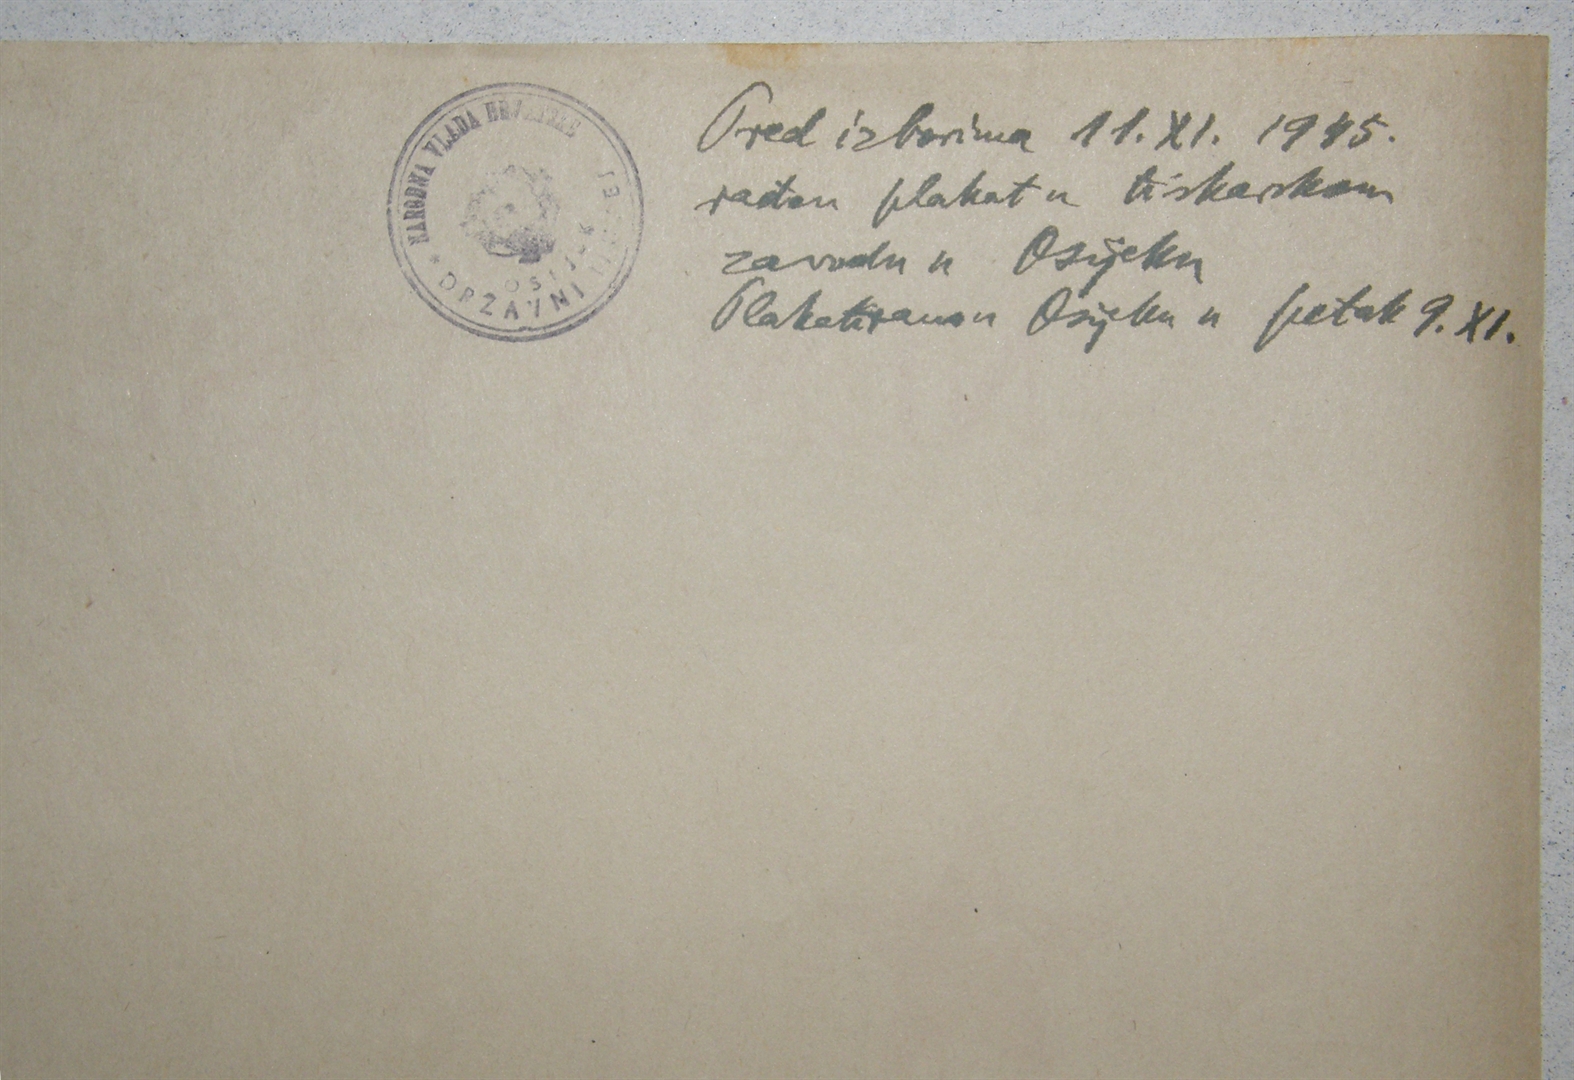 NARODNA VLADA HRVATSKE
OSIJEK
* DRŽAVNI
Pred izborima 11. XI. 1945.
rađen plakat u tiskarskom
zavodu u Osijeku
Plakatirano u Osijeku u petak 9. XI.